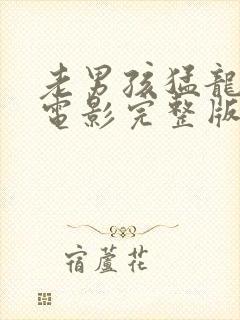 老男孩猛龍
電影完整版
宿蘆花